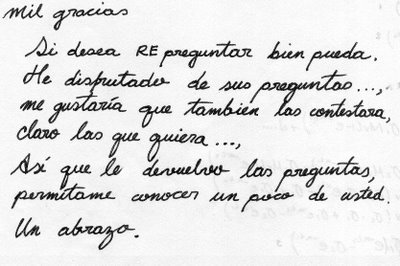 Mil gracias
Si desea RE preguntar bien pueda.
He disfrutado de sus preguntas...,
me gustaría que tambien las contestara,
claro las que quiera...,
Así que le devuelvo las preguntas,
permítame conocer un poco de usted.
Un abrazo.